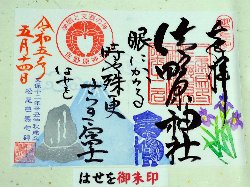 奉拝
佐野原神社
眼にかかる
時や殊更
さつき富士
はせを
令和五年
五月十四日
はせを御朱印